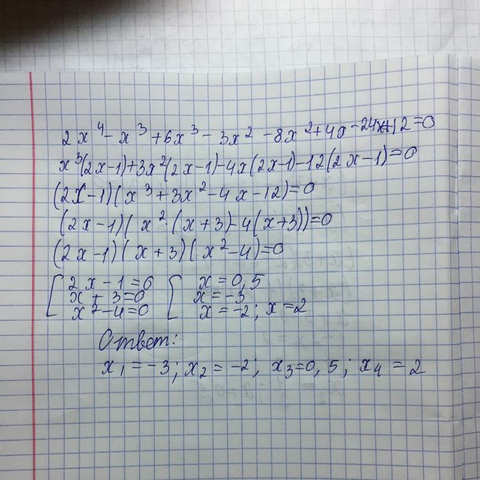 2x⁴ - x³ + 6x³ - 3x² - 8x² + 4x - 24x + 12 = 0
x³(2x-1) + 3x²(2x-1) - 4x(2x-1) - 12(2x-1) = 0
(2x-1)(x³ + 3x² - 4x - 12) = 0
(2x-1)(x²·(x+3) - 4(x+3)) = 0
(2x-1)(x+3)(x²-4) = 0
[ 2x-1=0 [ x = 0,5
x+3=0 x = -3
x²-4=0 x = -2; x = 2
Ответ:
x₁ = -3; x₂ = -2; x₃ = 0,5; x₄ = 2